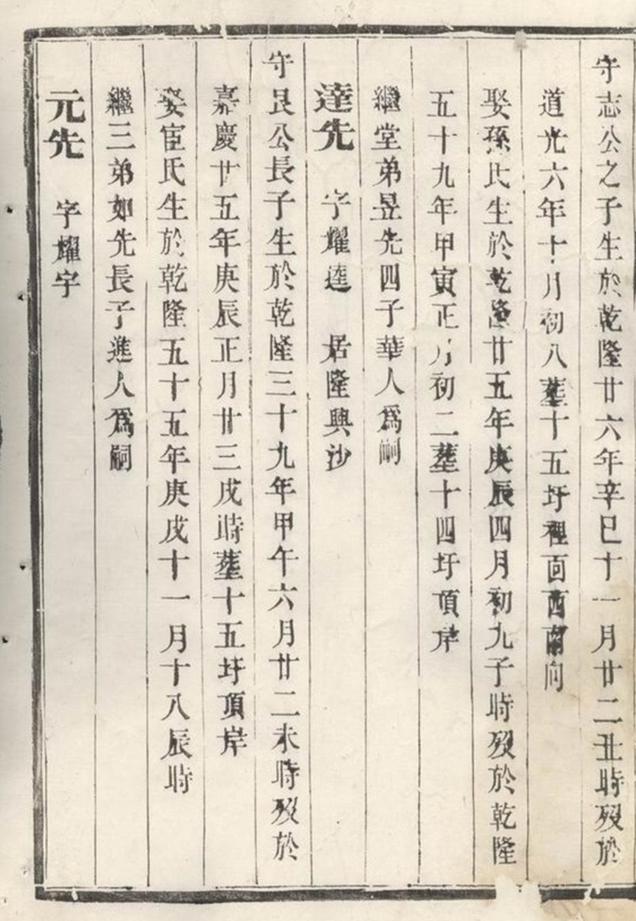 守志公之子生於乾隆廿六年辛巳十一月廿二丑時歿於
道光六年十月初八塟十五圩裡面西南向
娶孫氏生於乾隆廿五年庚辰四月初九子時歿於乾隆
五十九年甲寅正月初二塟十四圩頂岸
繼堂弟昱先四子華人為嗣
達先 字耀達 居隆興沙
守艮公長子生於乾隆三十九年甲午六月廿二未時歿於
嘉慶廿五年庚辰正月廿三戌時塟十五圩頂岸
娶宦氏生於乾隆五十五年庚戌十一月十八辰時
繼三弟如先長子進人爲嗣
元先 字耀宇